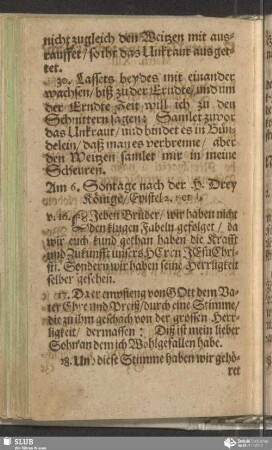 nicht zugleich den Weitzen mit aus-
räuffet / so ihr das Unkraut ausgettet.
30. Lassets beydes mit einander
wachsen / biß zu der Erndte / und um
der Erndte Zeit will ich zu den
Schnittern sagen: Samlet zuvor
das Unkraut / und bindet es in Bün-
delein / daß man es verbrenne / aber
den Weitzen samlet mir in meine
Scheuren.
Am 6. Sontage nach der H. Drey
Könige / Epistel 2. Pet. 1.
v. 16. Lieben Brüder / wir haben nicht
den klugen Fabeln gefolget / da
wir euch kund gethan haben die Krafft
und Zukunfft unsers HErrn JEsu Chri-
sti. Sondern wir haben seine Herrligkeit
selber gesehen.
17. Da er empfieng von GOtt dem Va-
ter Ehre und Preiß / durch eine Stimme /
die zu ihm geschach von der grossen Herr-
ligkeit / dermassen: Diß ist mein lieber
Sohn an dem ich Wohlgefallen habe.
18. Und diese Stimme haben wir gehö-
ret
SLUB
Wir führen Wissen.